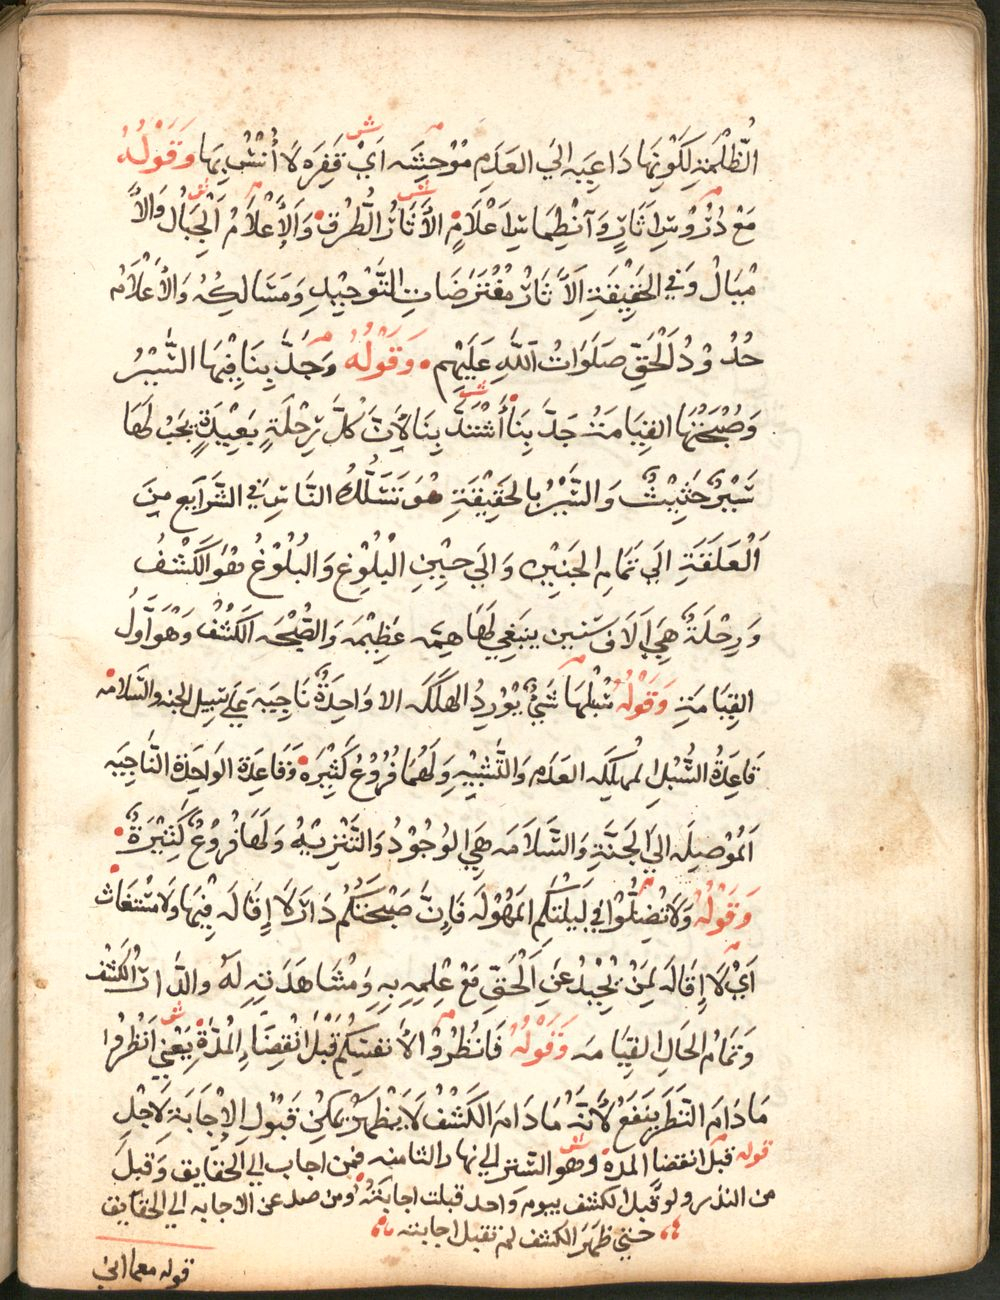 الظُّلْمَةِ لِكَوْنِهَا دَاعِيَه الي العَدَمِ مُوْحِشَه اَيْ قَفِرَه لَا أُنْسَ بِهَا وَقَوْلُهُ
مَعْ دُرُوْسِ اَثَارٍ وَآنْطِمَاسِ اَعْلَامٍ الأَثَارُ الطُّرقُ وَالأَعْلَامُ الْجِبَالُ وَالأَ
مْيَالْ وَفي الحَقِيْقَةِ اَلأَثَارْ مُفْتَرَضَاتِ التَّوْحِيْدِ وَمَسَالِكِهُ وَالأَعْلَامْ
حُدُوْدُ لَحَقِّ صَلَوَاتُ اَللهِ عَلَيْهِم وَقَوْلُهُ وَجَدَّ بِنَا فِيْهَا السَّيْرُ
وَصُبْحَتُهَا القِيَامَةُ جَدَّ بِنَا أَشْتَدَّ بِنَا لأَنَّ كُلَّ رِحْلَةٍ بَعِيْدَةٍ يَجِبْ لَهَا
سَيْرٌ حَثِيْثٌ وَالسَّيْرُ بالحَقِيْقَةِ هُوَ تَسَلُّكُ النَّاسِ في الشَّرَايِع مِنَ
اَلْعَلَقَةِ الَي تَمَامِ الجَنِيْنِ وَالَي حِيْنِ الْبُلُوْغِ وَالبُلُوْغُ هُوَ الكَشْفُ
وَرِحْلَةٌ هِيَ اَلَافَ سْنين ينبَغِي لَهَا هِمَّه عَظِيْمَه وَالصُّبْحَه الكَشْفْ وَهْوَ اَوَّلُ
القِيَامَةِ وَقَوْلُهُ سُبْلِهَا شَتَّي يُوْرِدُ الهَلَكَه الا وَاحِدَةٌ نَاجِيَه عَلَي سَبِيل الجنه والسَّلامه
قَاعِدَةُ السُّبْلِ المُهْلِكِه العَدَم وَالتَّشْبِيْهِ وَلَهُمَا فُرُوْعُ كَثِيْرَه وَقَاعِدَة الوَاحِدَة النَّاجِيَه
اَلْمُوْصِلَه الي الجَنَّةِ وَالسَّلَامَه هِيَ الوُجُوْدُ وَالتَّنْزِيْهُ وَلَهَا فُرُوْعٌ كَثِيْرَةٌ
وَقَوْلُهُ وَلَا تَضِلُّوْا في لَيْلَتِكُم المَهُوْلَه فَاِنَّ صَبْحَتَكُمْ دَارٌ لَا إِقَالَه فِيْهَا وَلَا مُسْتَغَاثْ
اَيْ لَا إِقَالَه لِمَنْ يَحِيْدُ عَنِ اَلْحَقِّ مَعْ عِلْمِهِ بِهِ وَمُشَاهَدَتِهِ لَهُ والدَّارُ الْكَشْف
وَتَمَامُ الحَالِ القِيَامَه وَقَوْلُهُ فَانْظُرُوْا لأَنْفُسِكُم قَبْلَ انْقِضَاءِ الْمُدَّةِ يَعْنِي اَنْظُرُوا
مَا دَامَ النَّظَر يَنْفَعْ لأَنَّه مَا دَامَ الكَشْفُ لَا يَظْهَرْ يُمْكِنْ قَبُولِ الإِجَابَة لأَجْلِ
قوله قبل انقضا المده وهو الستر الي نهار الثامنه فمن اجاب الي الحقايق وَقبلَ
من النذر ولو قبل الكشف بيوم واحد قبلت اجابته ومن صد عن الاجابه الي الحقايق
حتي ظهر الكشف لم تقبل اجابته
قوله معما اني